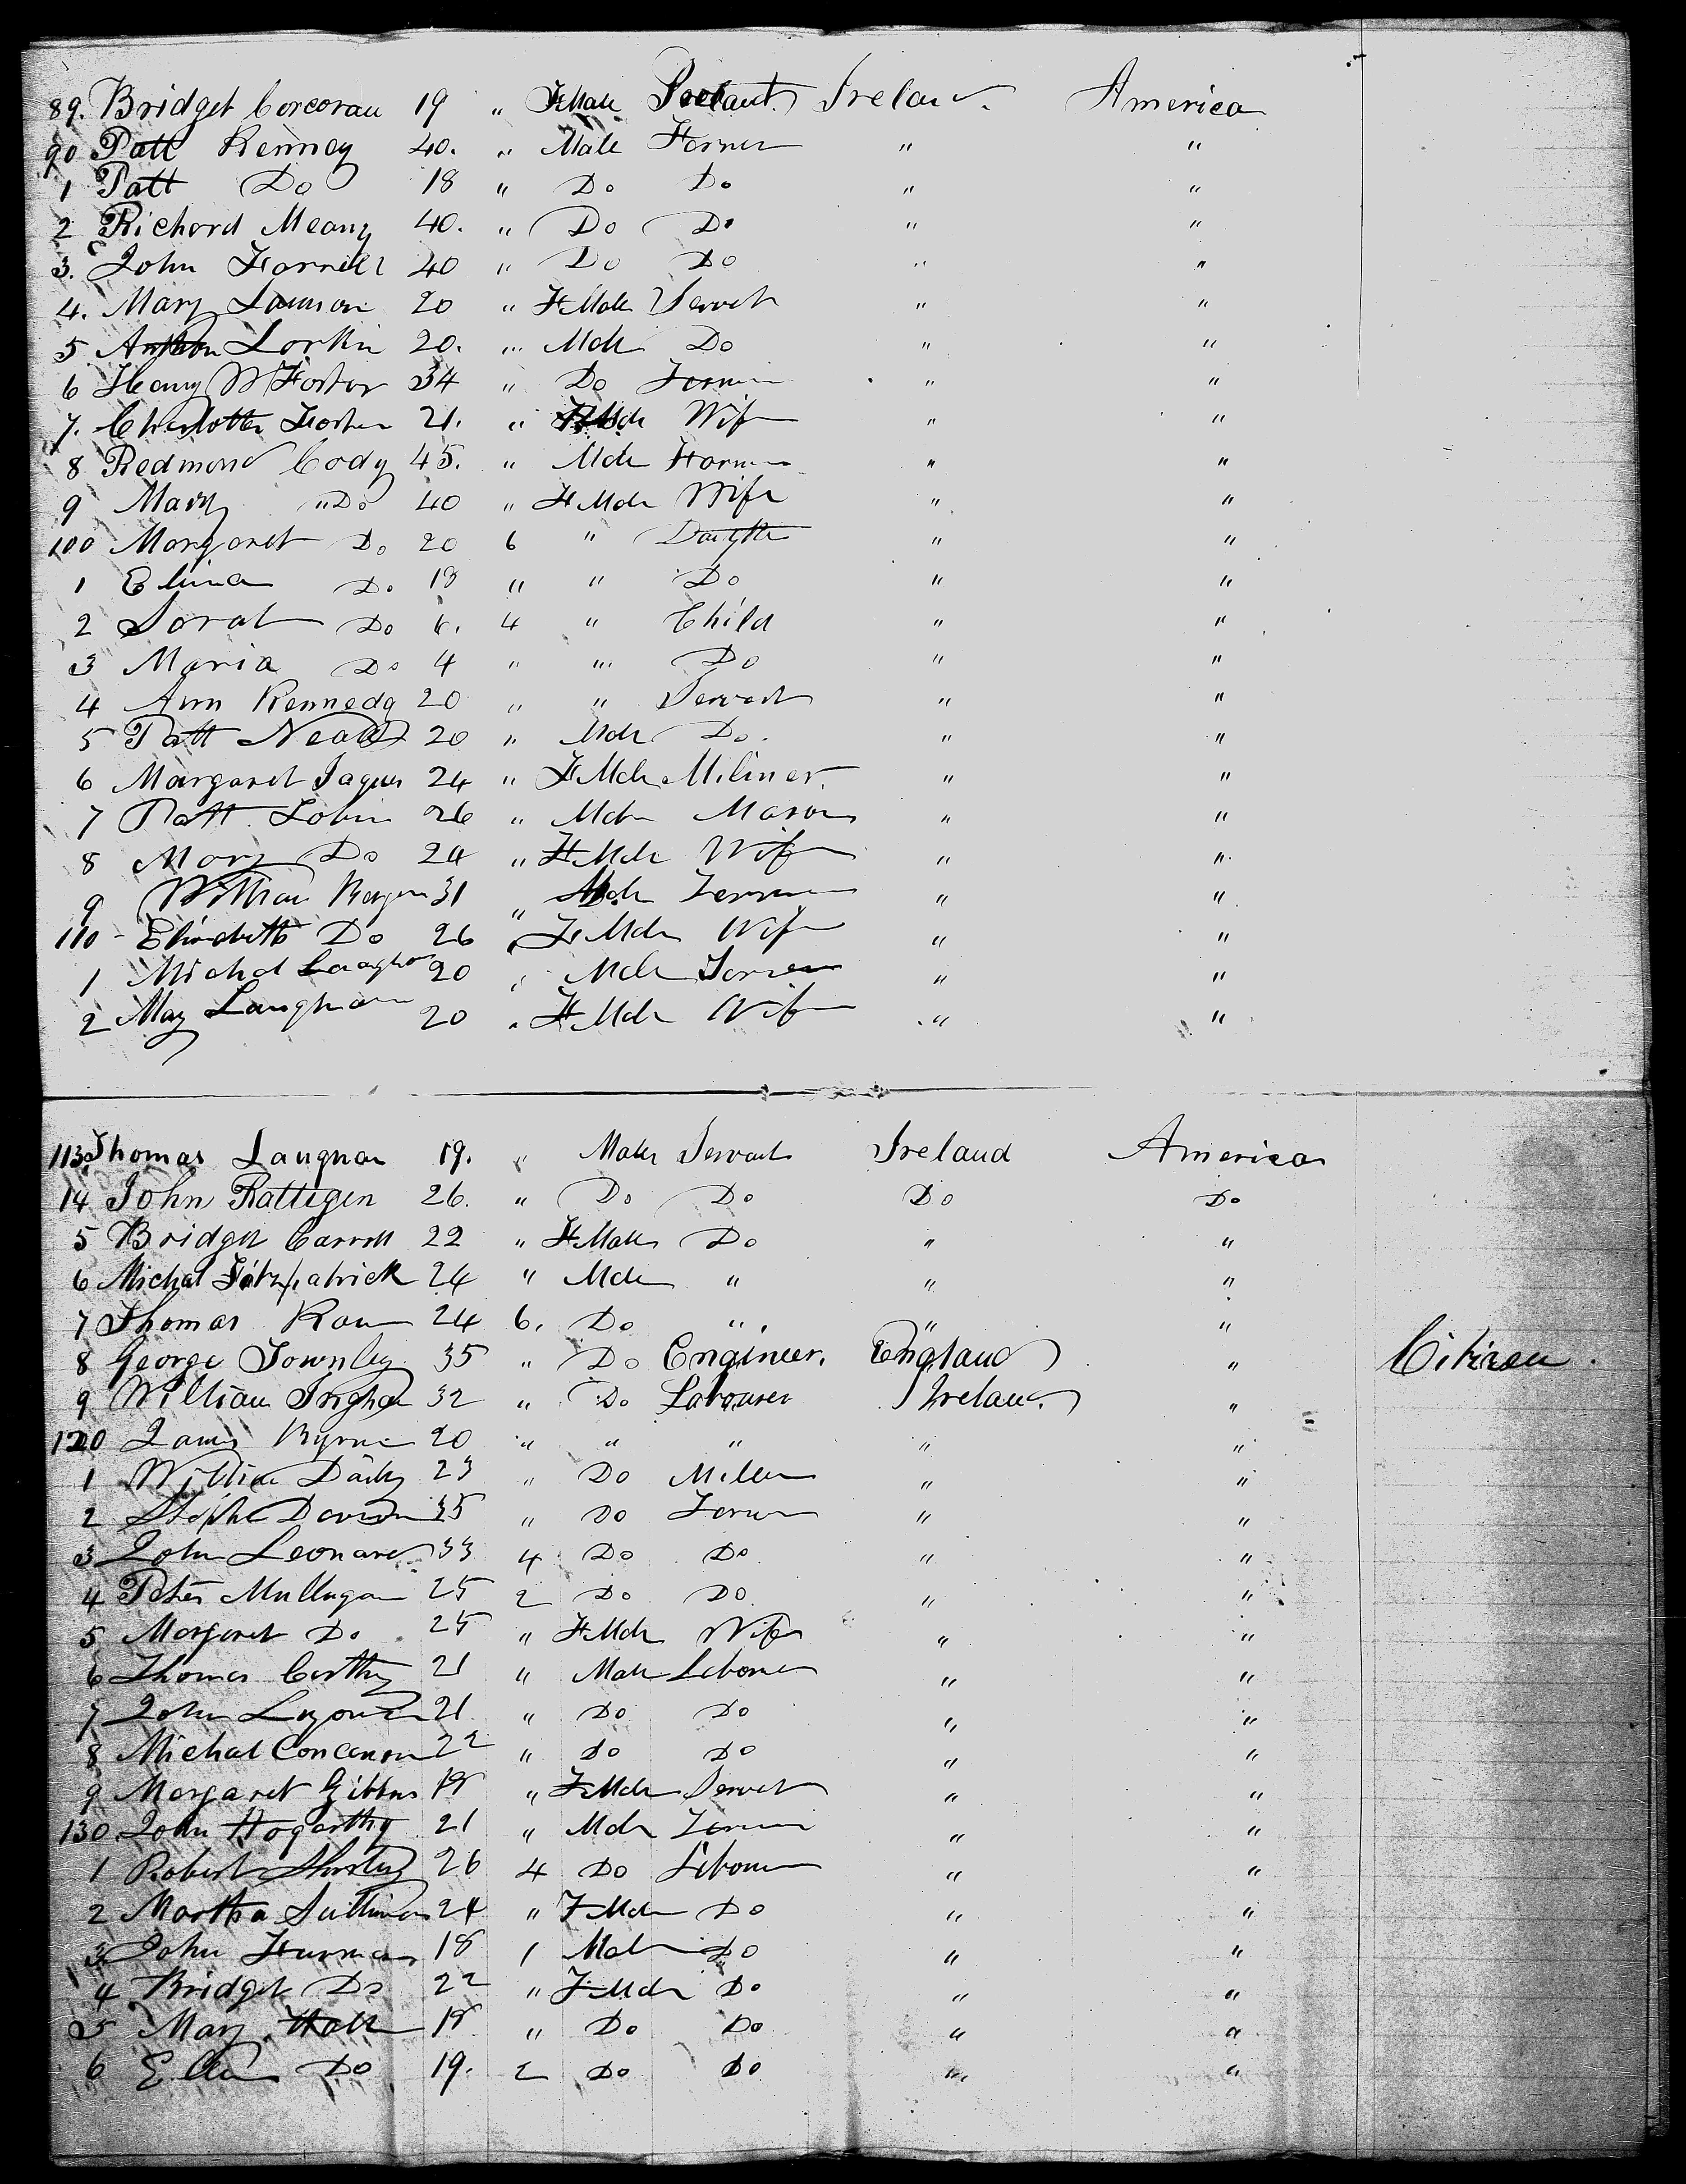 89. Bridget Corcoran 19 " FMale Ireland. America
90 Patt Kenney 40. " Male Farmer " "
1 Patt Do 18 " Do Do " "
2 Richard Meany 40. " Do Do " "
3. John Farrell 40 " Do Do " "
4. Mary 20 " FMale Servt " "
5 Larkin 20. " Male Do " "
6 Henry W Foster 34 " Do Farmer " "
7. Charlotte Foster 21. " FMale Wife " "
8 Redmond Cody 45. " Male Farmer " "
9 Mary " Do 40 " FMale Wife " "
100 Margaret Do 20 6 " Daughter " "
1 Do 18 " " Do " "
2 Sarah Do 6. 4 " Child " "
3 Maria Do 4 " " Do " "
4 Ann Kennedy 20 " " Servant " "
5 Patt Neale 20 " Male Do. " "
6 Margaret 24 " FMale Miliner. " "
7 Patt Tobin 26 " Male Mason " "
8 Mary Do 24 " FMale Wife " "
9 William 31 " Male Farmer " "
110 - Elizabeth Do 26 " FMale Wife " "
1 Michal 20 " Male Farmer " "
2 May Langhan 20 " FMale Wife " "
113 Thomas Langnan 19. " Male Servant Ireland America
14 John Rattigen 26. " Do Do Do Do
5 Bridget Carroll 22 " FMale Do " "
6 Michal Fitzpatrick 24 " Male " " "
7 Thomas 24 6. Do " " "
8 George Townley 35 " Do Engineer. England " Citizen.
9 William 32 " Do Labourer Ireland. "
120 James Byrne 20 " " " " "
1 William Daily 23 " Do Miller " "
2 35 " Do Farmer " "
3 John Leonard 33 4 Do Do " "
4 Peter Mullugan 25 2 Do Do " "
5 Margaret Do 25 " FMale Wife " "
6 Thomas Carthy 21 " Male Labourer " "
7 John 21 " Do Do " "
8 Michal Concannon 22 " Do Do " "
9 Margaret Gibbons 18 " FMale Servant " "
130. John Hogarthy 21 " Male Farmer " "
1 Robert 26 4 Do Labourer " "
2 Martha Sullivan 24 " FMale Do " "
3 John 18 1 Male Do " "
4 Bridget Do 22 " FMale Do " "
5 Mary 18 " Do Do " "
6 Ellen Do 19. 2 Do Do " "